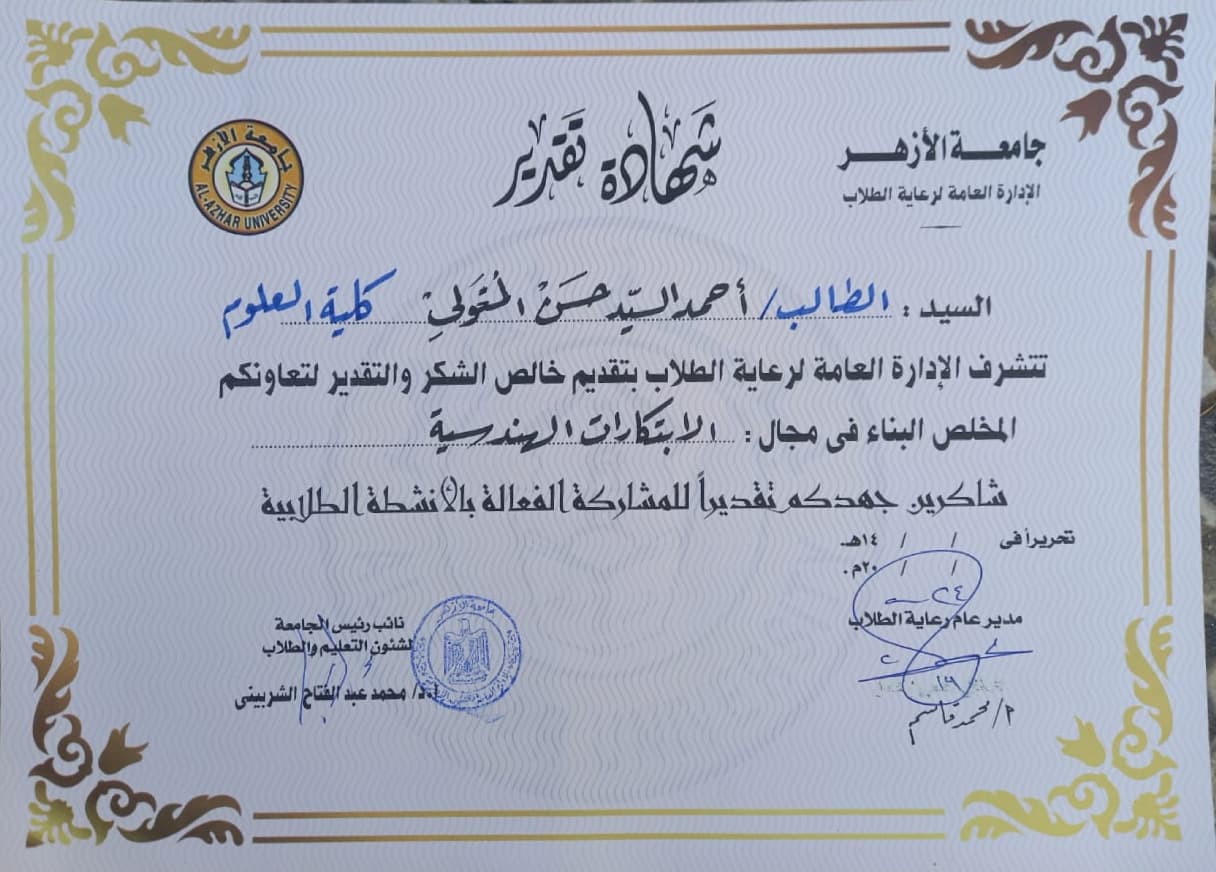 جامعة الأزهر
الإدارة العامة لرعاية الطلاب
شهادة تقدير
جامعة الأزهر
AL-AZHAR UNIVERSITY
السيد : الطالب/ أحمد السيّد حسن المتولي كلية العلوم
تتشرف الإدارة العامة لرعاية الطلاب بتقديم خالص الشكر والتقدير لتعاونكم
المخلص البناء فى مجال : الابتكارات الهندسية
شاكرين جهدكم تقديراً للمشاركة الفعالة بالأنشطة الطلابية
تحريراً فى / / ١٤هـ
/ / ٢٠م.
مدير عام رعاية الطلاب
م/ محمد قاسم
نائب رئيس الجامعة
لشئون التعليم والطلاب
أ.د/ محمد عبد الفتاح الشربينى
جامعة الأزهر